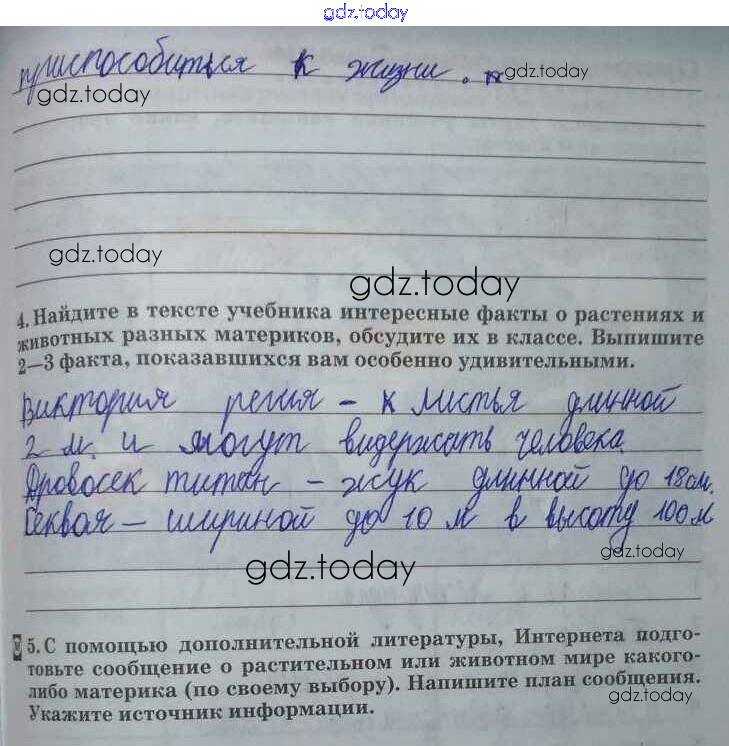 gdz.today
приспособиться к жизни.
gdz.today
gdz.today
gdz.today
gdz.today
4. Найдите в тексте учебника интересные факты о растениях и
животных разных материков, обсудите их в классе. Выпишите
2—3 факта, показавшихся вам особенно удивительными.
Виктория регия - листья длинной
2 м. и могут видержать человека
Дровосек титан - жук длинной до 18 см.
Секвоя - шириной до 10 м в высоту 100 м
gdz.today
gdz.today
5. С помощью дополнительной литературы, Интернета подго-
товьте сообщение о растительном или животном мире какого-
либо материка (по своему выбору). Напишите план сообщения.
Укажите источник информации.
gdz.today